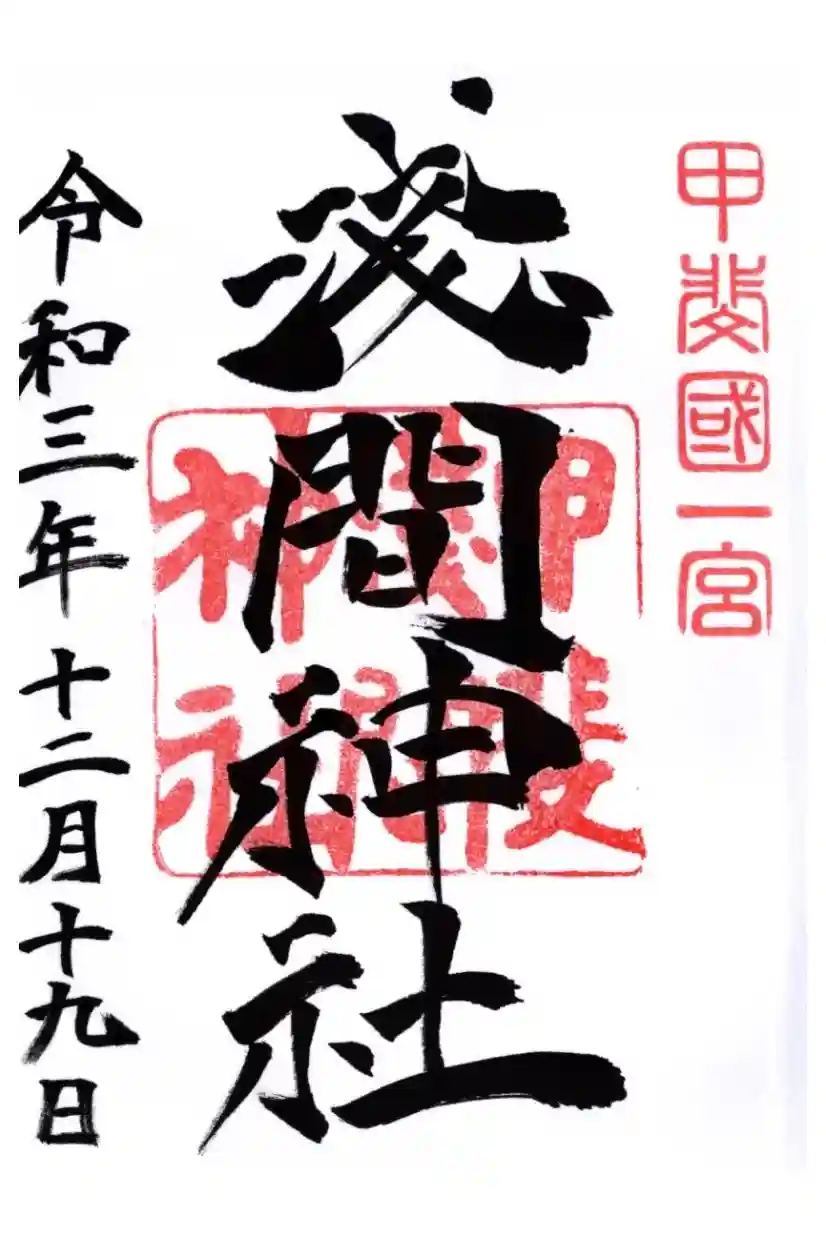 甲斐國一宮
浅間神社
甲斐
神社
令和三年十二月十九日